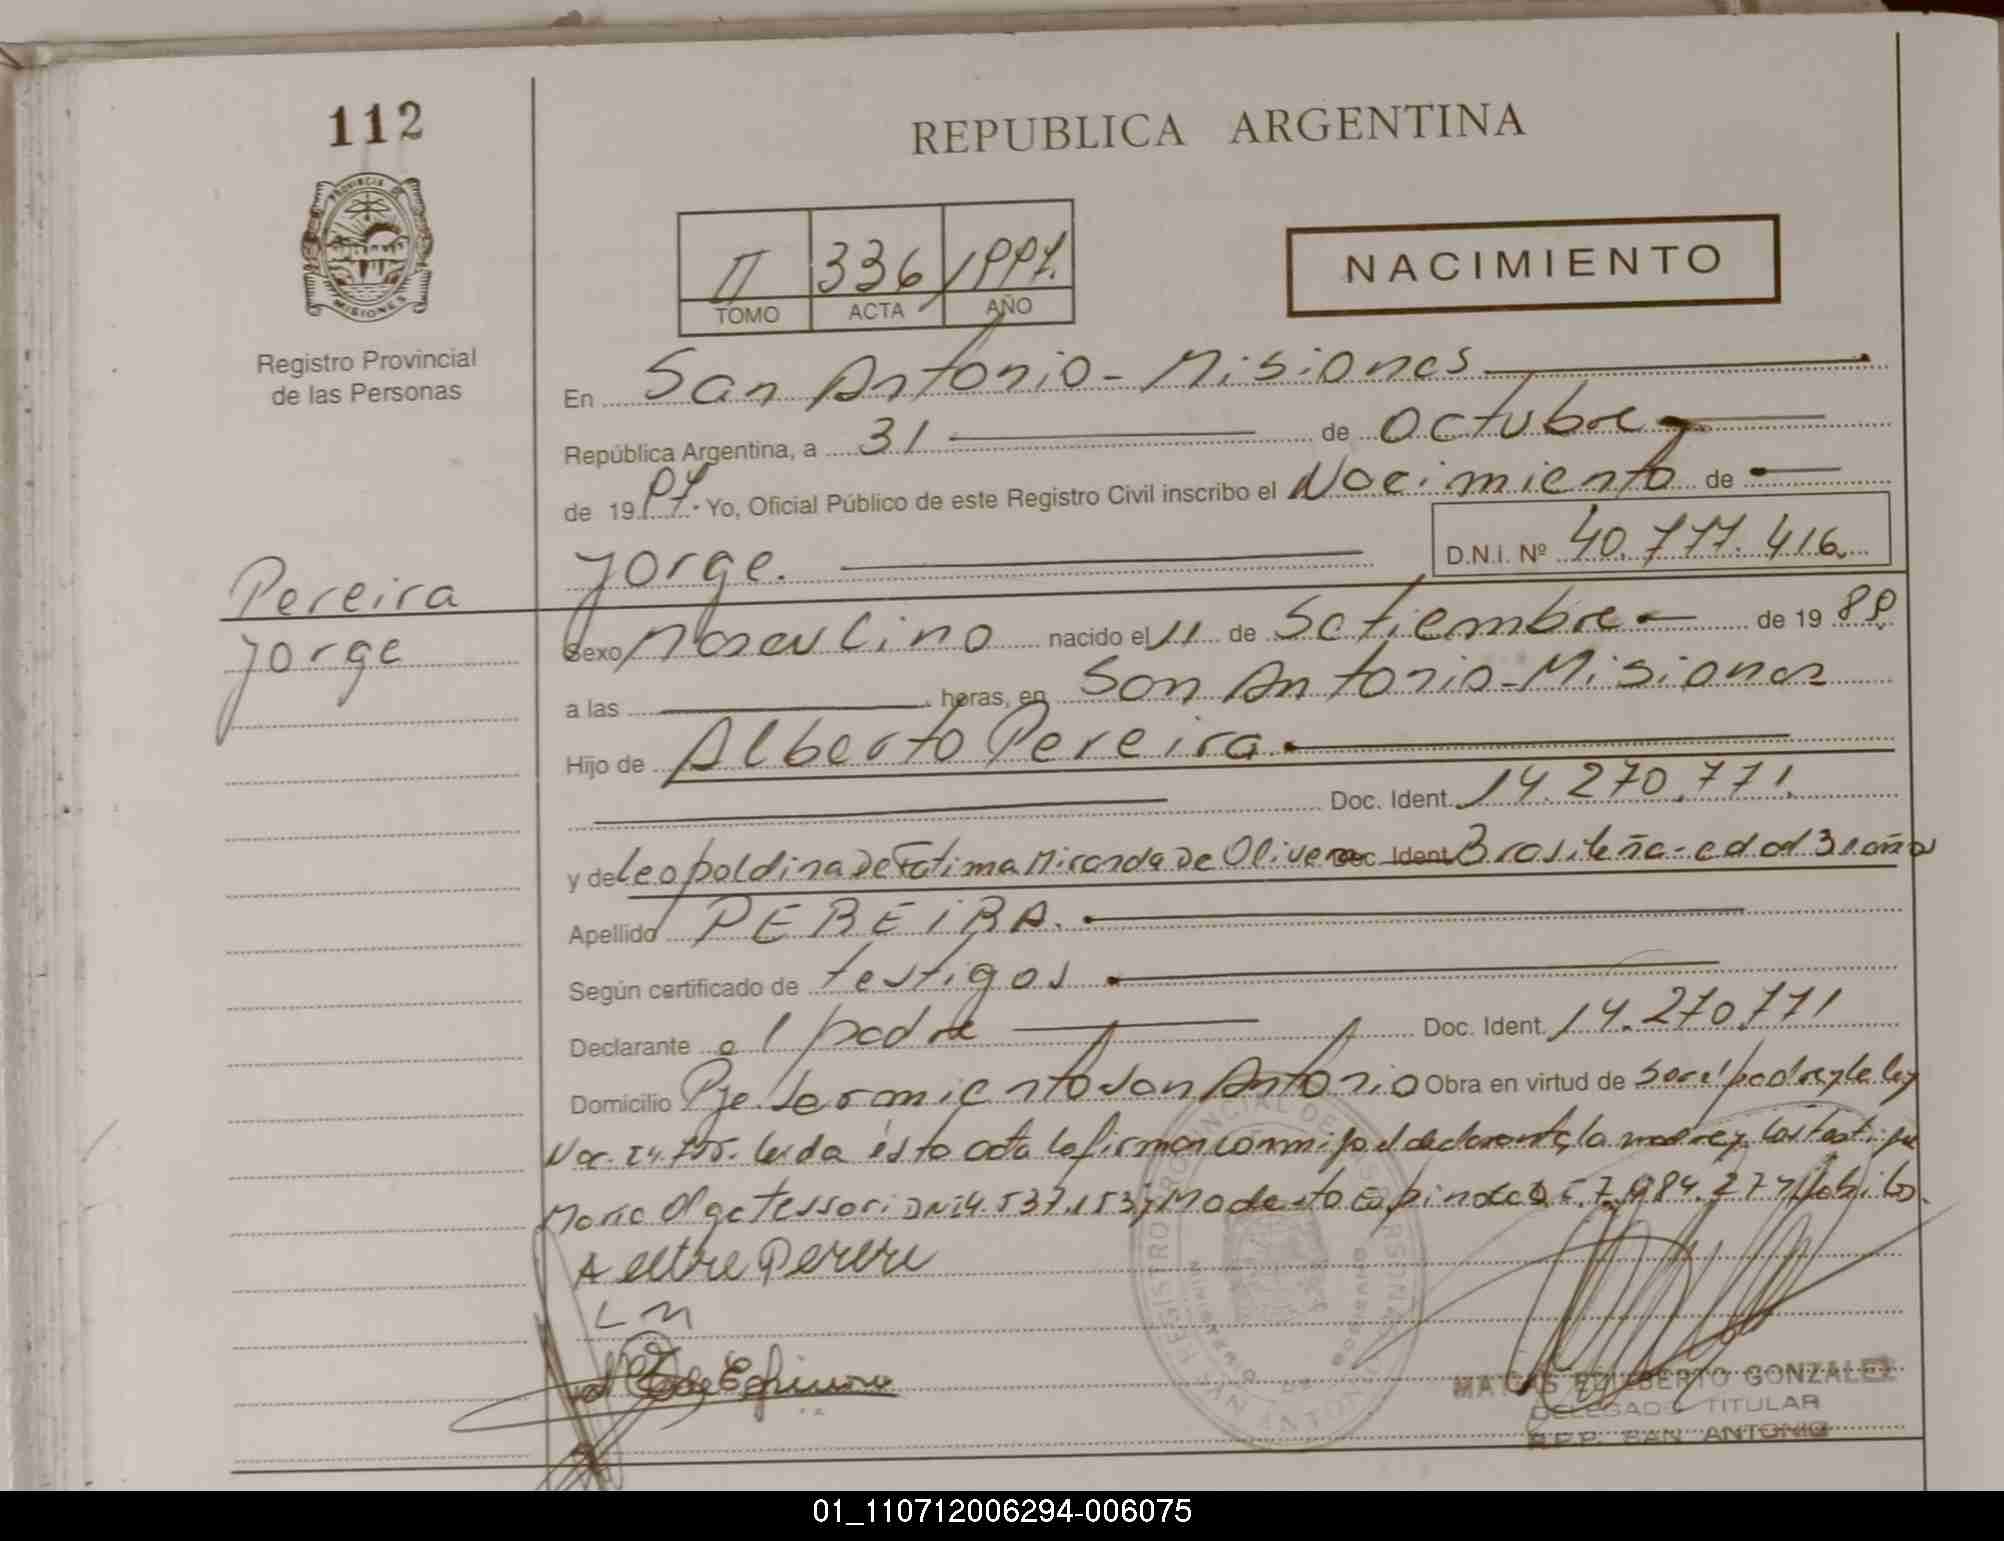 112
REPUBLICA ARGENTINA
PROVINCIA DE
MISIONES
Registro Provincial
de las Personas
II 336 1997.
TOMO ACTA AÑO
NACIMIENTO
En San Antonio - Misiones
República Argentina, a 31 de octubre
de 1997. Yo, Oficial Público de este Registro Civil inscribo el Nacimiento de
Jorge. D.N.I. Nº 40.777.416
Pereira
Jorge
Sexo Masculino nacido el 11 de Setiembre de 1989
a las horas, en San Antonio - Misiones
Hijo de Alberto Pereira
Doc. Ident. 14.270.771.
y de Leopoldina De Fatima Miranda De Olivera Doc. Ident. Brasileña - edad 31 años
Apellido PEREIRA.
Según certificado de testigos
Declarante el padre Doc. Ident. 14.270.771
Domicilio Pje. Sarmiento San Antonio Obra en virtud de ser el padre y de ley
Nac. 24.755. Leida ésta acta la firman conmigo el declarante, la madre y los testigos
Maria Olga Tessari DNI 4.537.153 y Modesto Espindola 7.984.277
LM
MATIAS EDILBERTO GONZALEZ
DELEGADO TITULAR
R.P.P. SAN ANTONIO
01_110712006294-006075